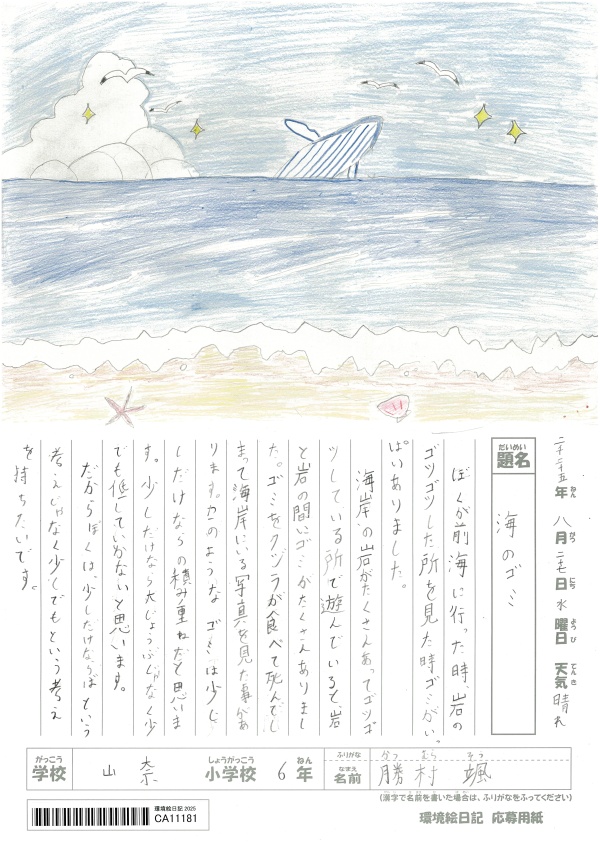 二千二十五年 八月 二十七日 水曜日 天気 晴れ
ねん がつ にち ようび てんき
だいめい
題名
海のゴミ
ぼくが前海に行った時岩の
ゴツゴツした所を見た時ゴミがいっ
ぱいありました。
海岸の岩がたくさんあってゴツゴ
ツしている所で遊んでいると、岩
と岩の間にゴミがたくさんありまし
た。ゴミをクジラが食べて死んでし
まって海岸にいる写真を見た事があ
ります。このようなゴミは少し
しだけならの積み重ねだと思いま
す。少しだけなら大じょうぶじゃなく少
でも低していかないと思います。
だからぼくは、少しだけならばという
考えじゃなく少しでもという考え
を持ちたいです。
がっこう しょうがっこう ねん
学校 山奈 小学校 6年
ふりがな かつ むら そう
なまえ
名前 勝村 颯
(漢字で名前を書いた場合は、ふりがなをふってください)
環境絵日記 2025
CA11181
環境絵日記 応募用紙